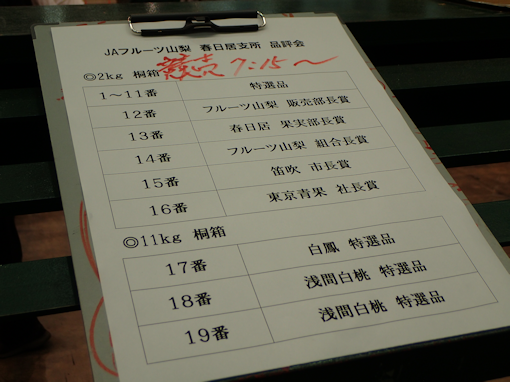 JAフルーツ山梨 春日居支所 品評会
◎2kg 桐箱 競売 7:15〜
1〜11番 特選品
12番 フルーツ山梨 販売部長賞
13番 春日居 果実部長賞
14番 フルーツ山梨 組合長賞
15番 笛吹 市長賞
16番 東京青果 社長賞
◎11kg 桐箱
17番 白鳳 特選品
18番 浅間白桃 特選品
19番 浅間白桃 特選品